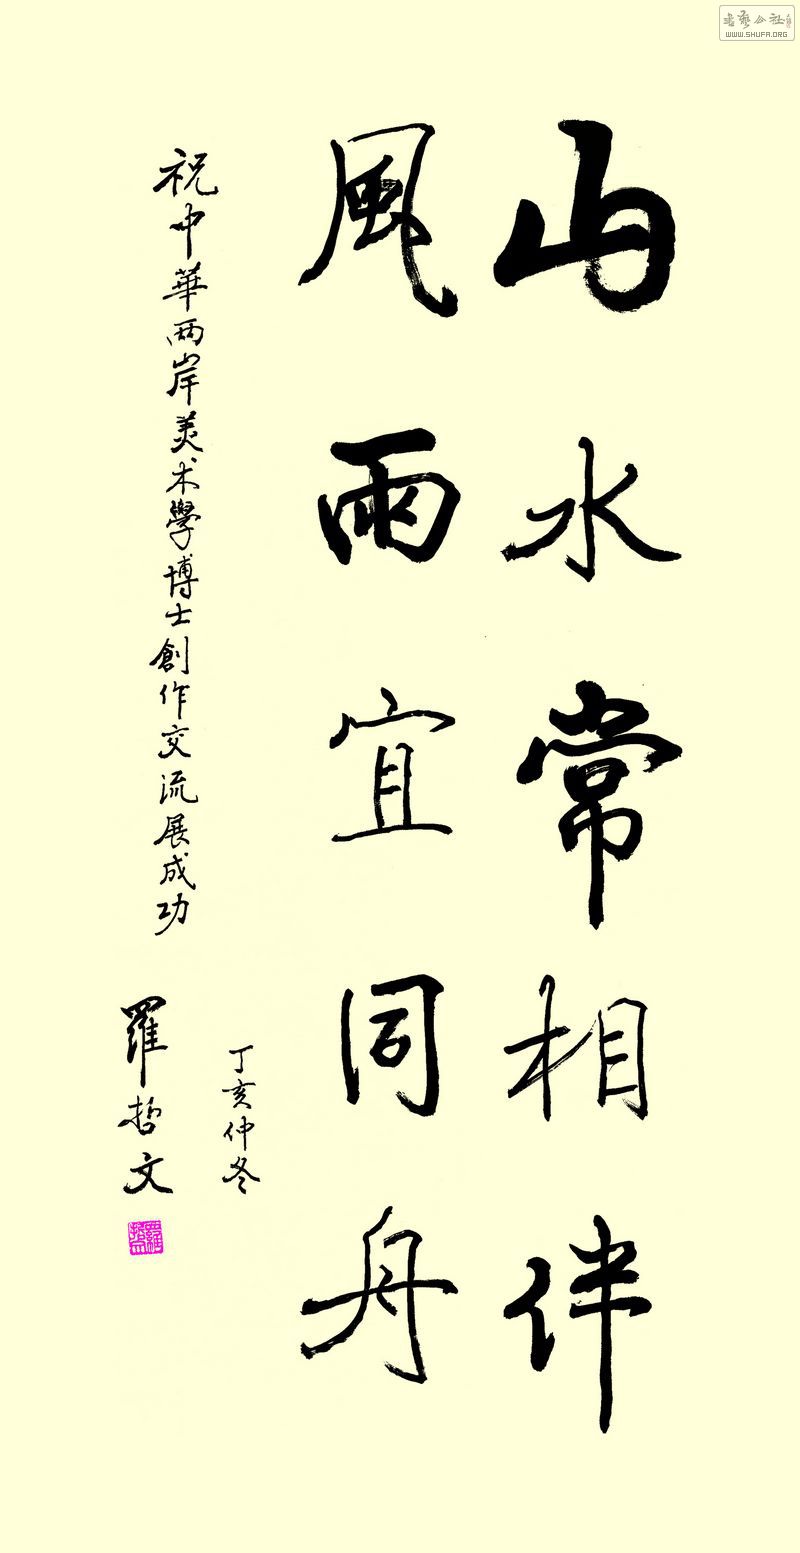 山水常相伴
風雨宜同舟
丁亥仲冬
祝中華兩岸美术學博士創作交流展成功
羅哲文
WWW.SHUFA.ORG